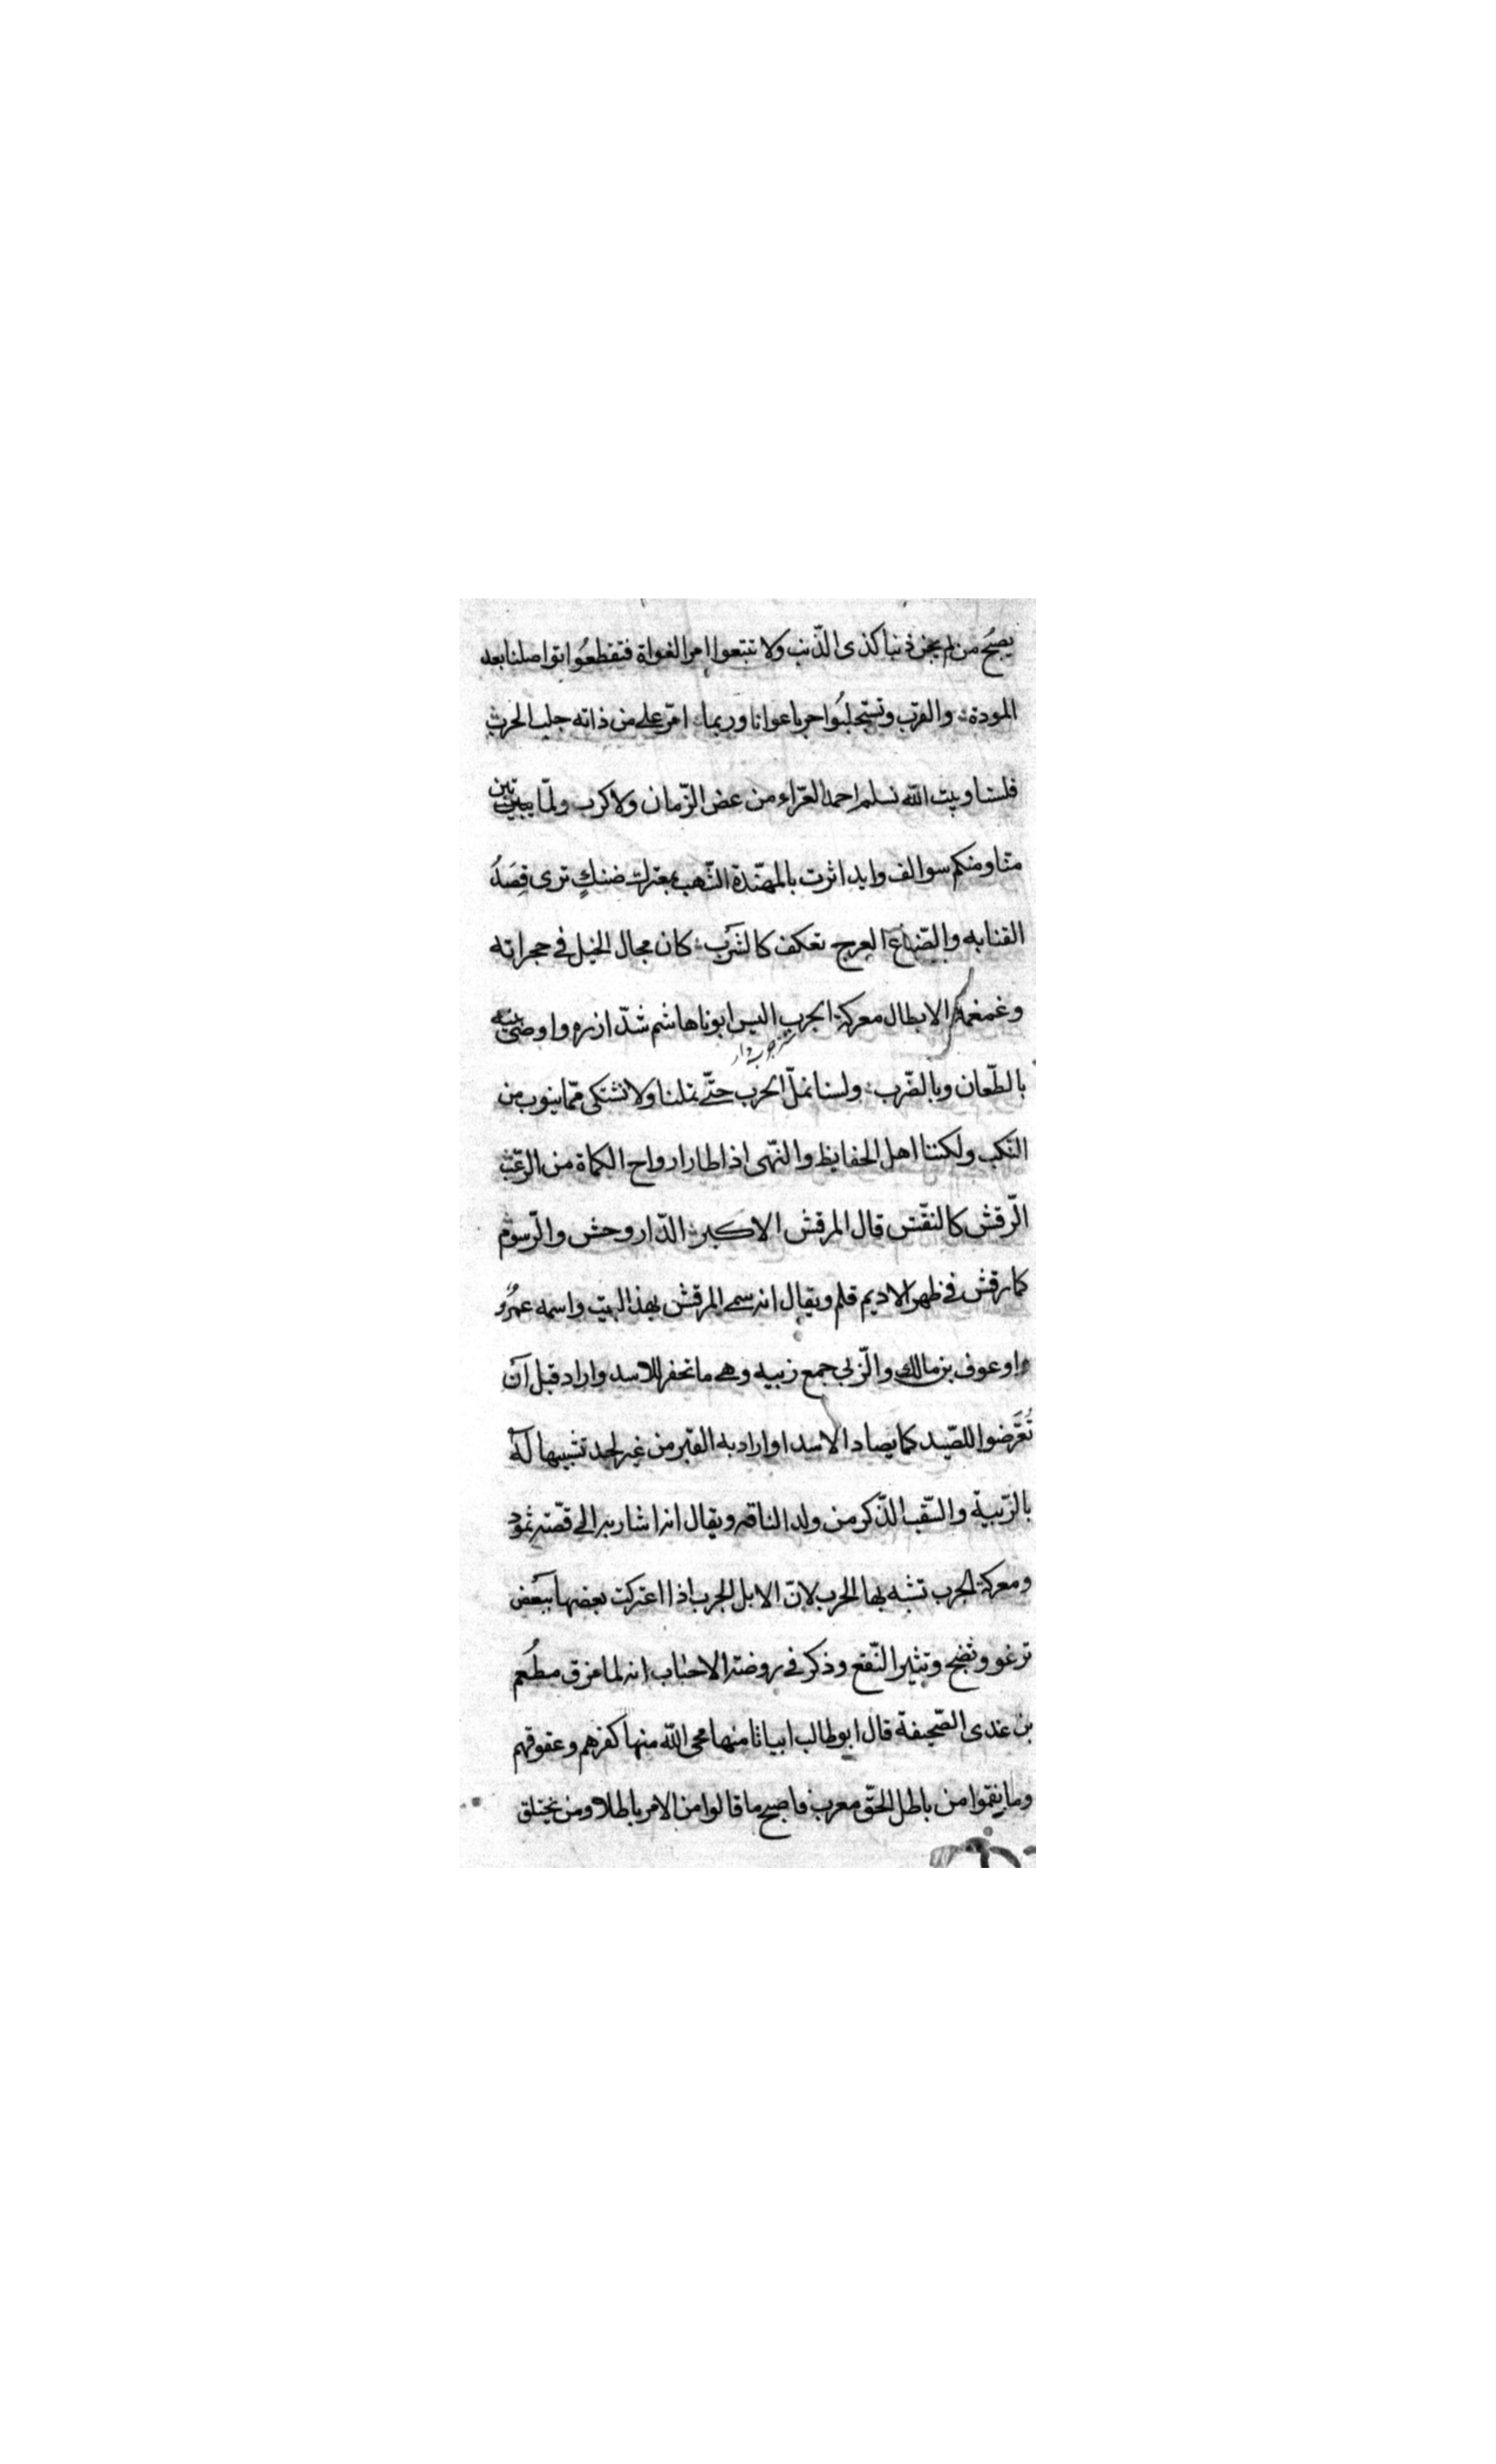 يصبح من لم يجن ذنبا كذى الذّنب ولا تتبعوا امر الغواة فتقطعُوا تواصلنا بعد
المودة والقرب وتستجلبُوا حربا عوانا وربما امرّ على من ذاته جلب الحرب
فلسنا وبيت اللّه نسلم احمد العزّاء من عض الزّمان ولا كرب ولمّا يبين تبن
منّا ومنكم سوالف وايد اثرت بالمهنّدة الشهب بمعترك ضنكٍ ترى قِصَدُ
القنا به والضباع العرج تعكف كالشَرب كان مجال الخيل فى حجراته
وغمغمة الابطال معركة الجرب اليس ابونا هاشم شدّ ازره واوصى بنيه
بالطّعان وبالضّرب ولسنا نملّ الحرب حتّى تملنا ولا نشتكى ممّا ينوب من
النكب ولكننا اهل الحفايظ والنّهى اذا طار ارواح الكماة من الرّعب
الّرقش كالنقّش قال المرقش الاكبر الدّار وحش والّرسوم
كما رقش فى ظهر الاديم قلم ويقال انه سمى المرقش بهذا البيت واسمه عمرُو
او عوف بن مالك والّزبى جمع زبيه وهى ما تحفر للاسد واراد قبل آن
تُعَّرضوا للصّيد كما يصاد الاسد او اراد به القبر من غير لحد تشبيها له
بالزّبية والسّقب الذّكر من ولد الناقه ويقال انه اشار به الى قصّته ثمود
ومعركة الجرب تشبه بها الحرب لانّ الابل الجرب اذا اعتركت بعضها ببَعْض
ترغو وتضج وتثير النّقع وذكر فى روضته الاحباب انه لما مزق مطُعم
بن عدى الصّحيفة قال ابو طالب ابياتا منها محى اللّه منها كفرهم وعقوقهم
وما نقموا من باطل الحقّ معرب فاصبح ما قالوا من الامر باطلا ومن يختلق